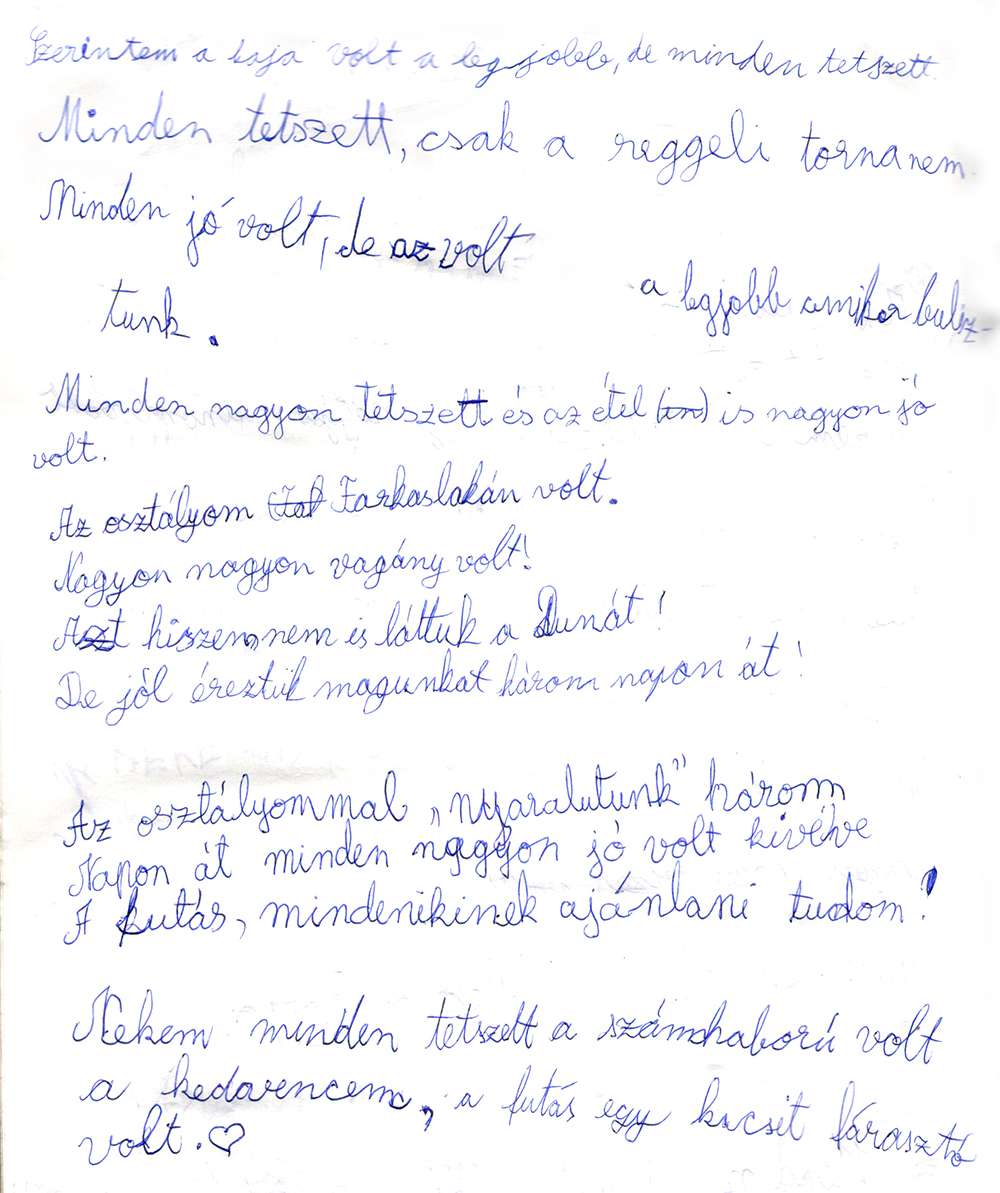 Szerintem a kaja volt a legjobb, de minden tetszett.
Minden tetszett, csak a reggeli torna nem.
Minden jó volt, de az volt
a legjobb amikor buliz-
tunk.
Minden nagyon tetszett és az étel (im) is nagyon jó
volt.
Az osztályom (Fal Farkaslakán volt.
Nagyon nagyon vagány volt!
Azt hiszem, nem is láttuk a Dunát!
De jól éreztük magunkat három napon át!
Az osztályommal „nyaralutunk” három
Napon át minden nagyon jó volt kivéve
A futás, mindenikinek ajánlani tudom!
Nekem minden tetszett a számháború volt
a kedvencem, a futás egy kicsit fárasztó
volt.♡